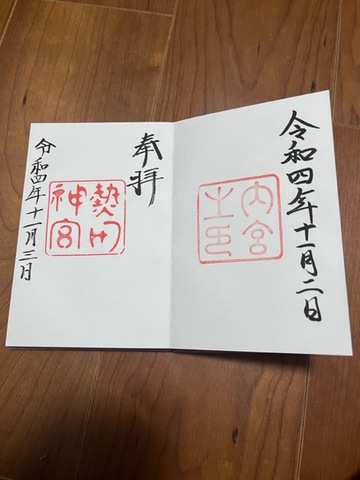 令和四年十一月二日
内宮
之印
奉拝
熱田
神宮
令和四年十一月三日